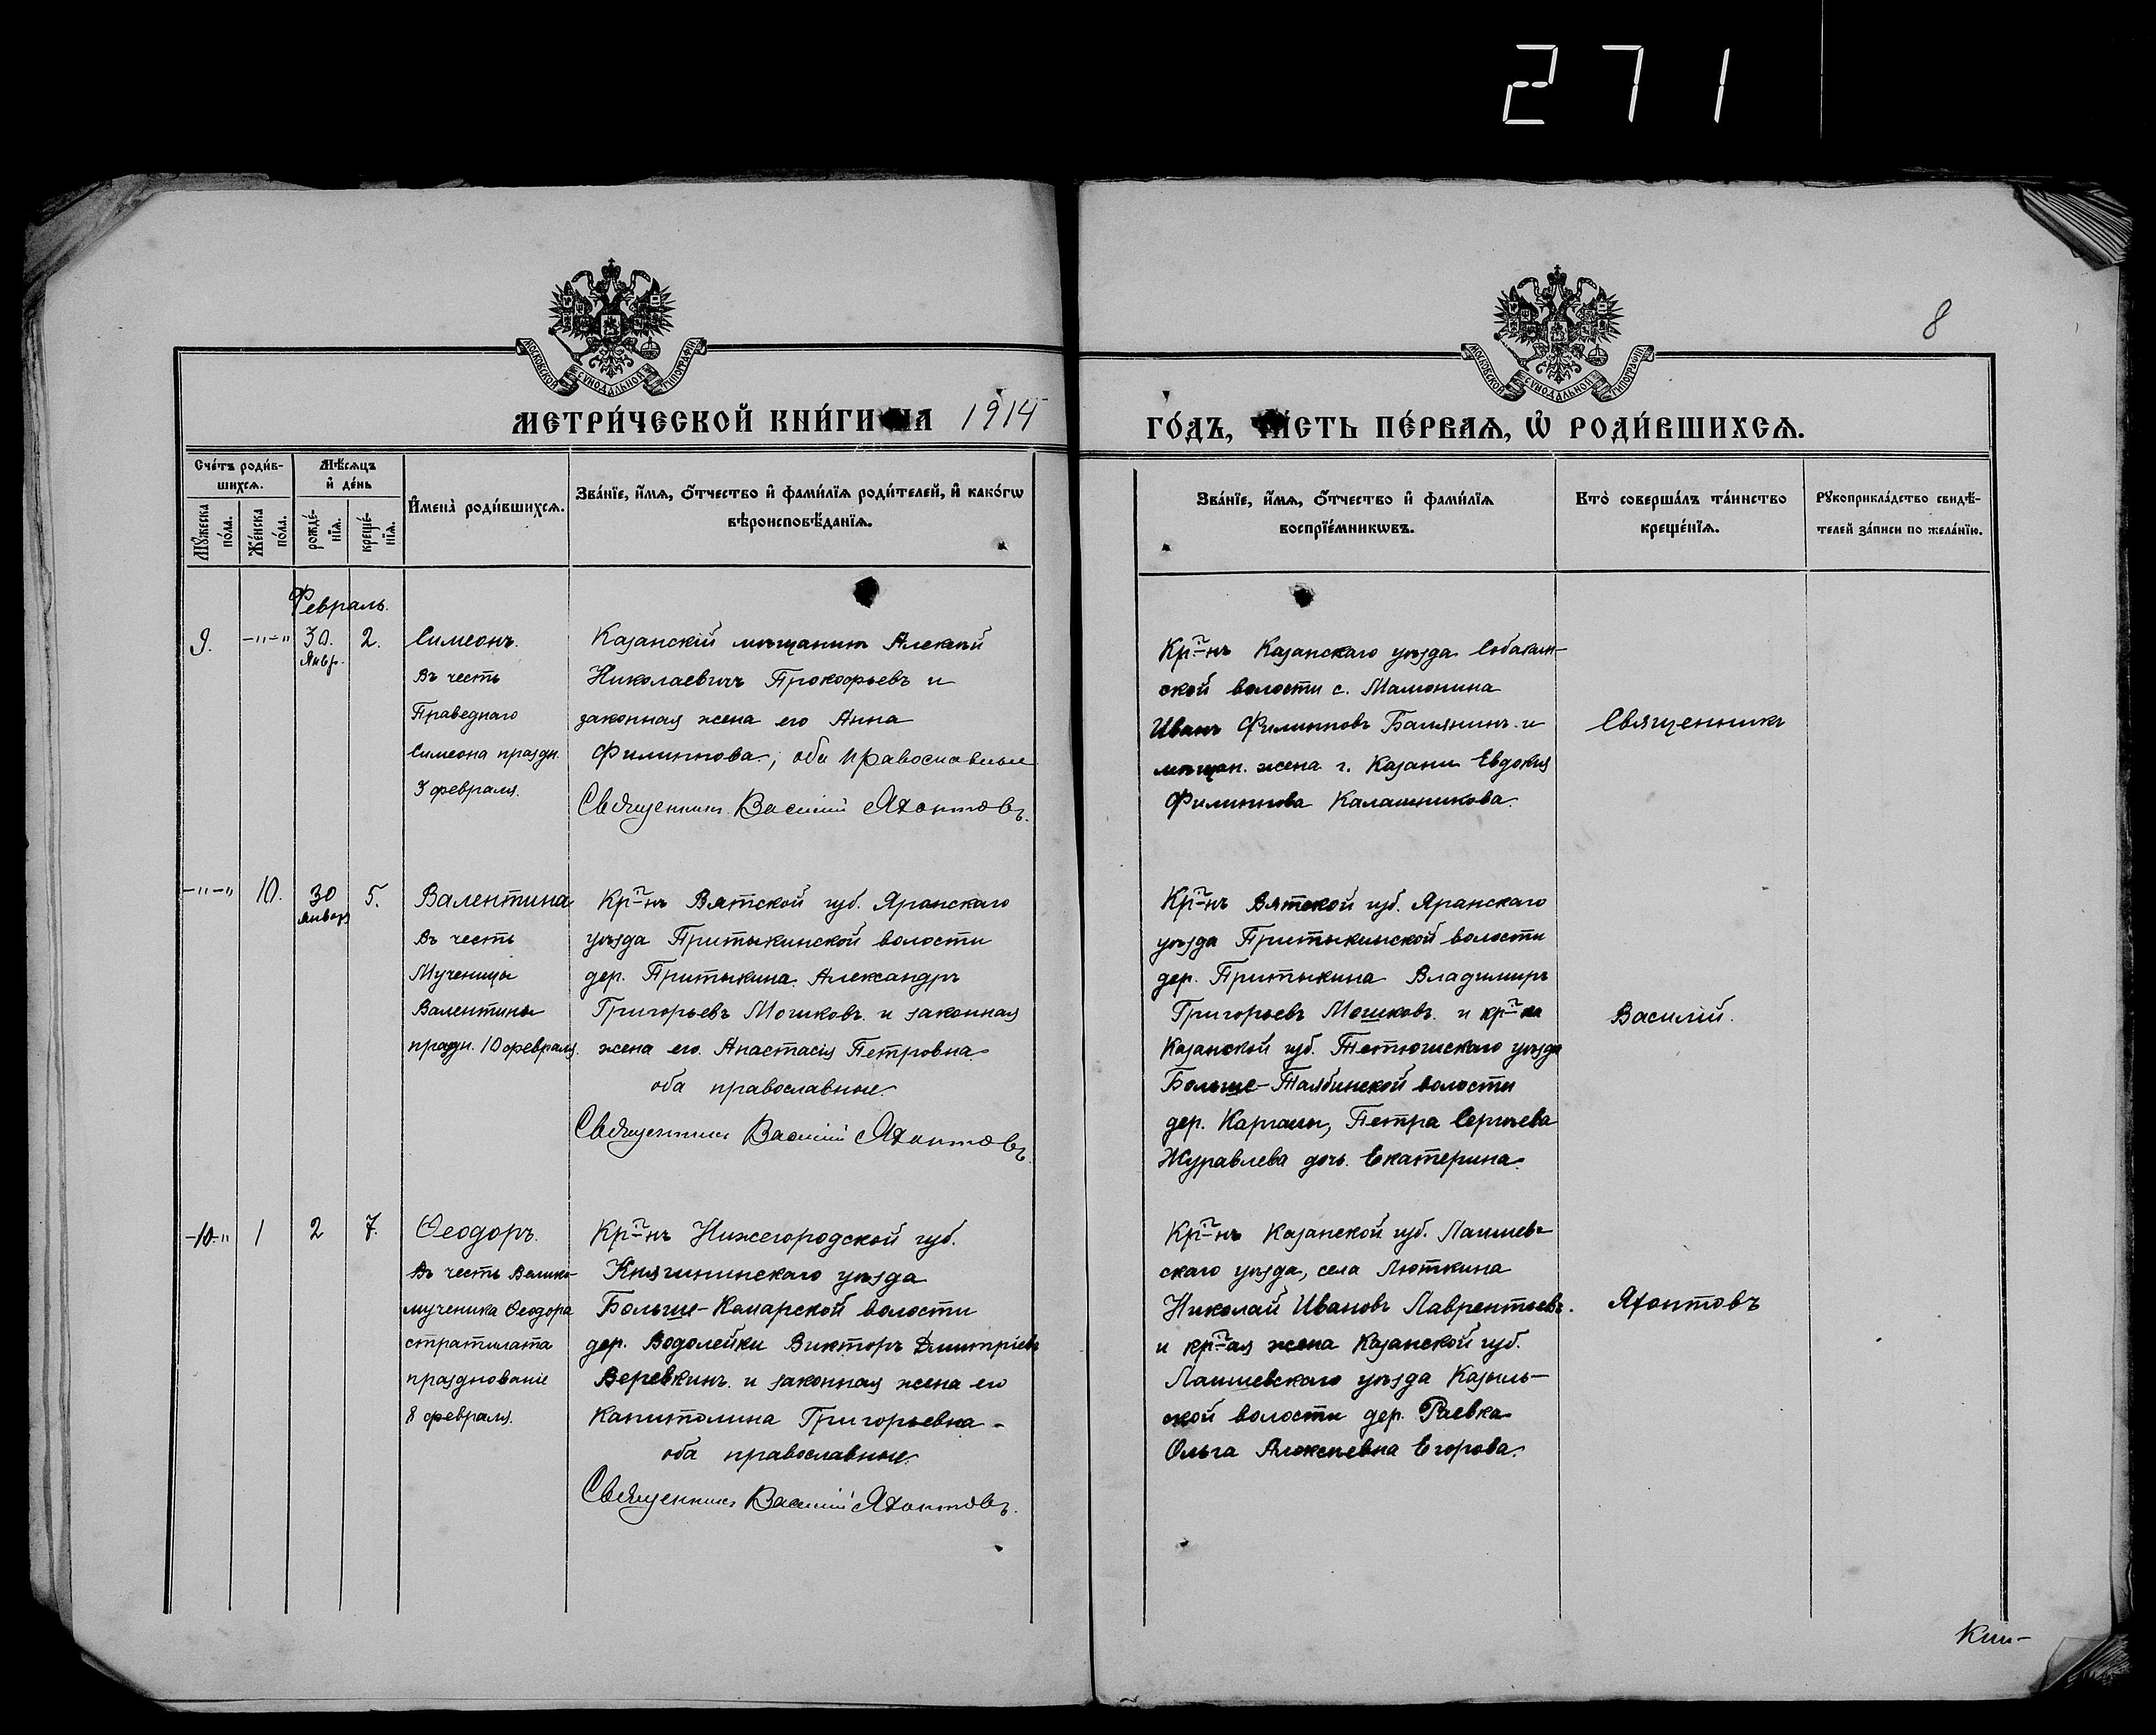 271
8
МОСКОВСКОЙ СѴНОДАЛЬНОЙ ТИПОГРАФІИ
МОСКОВСКОЙ СѴНОДАЛЬНОЙ ТИПОГРАФІИ
МЕТРИ́ЧЕСКОЙ КНИ́ГИ НА 1914
ГО́ДЪ, ЧА́СТЬ ПЕ́РВАѦ, Ѡ҆ РОДИ́ВШИХСѦ.
Сче́тъ роди́в-
шихсѧ.
Мꙋ́жеска по́ла.
Же́нска по́ла.
Мѣ́сѧцъ
и҆ де́нь
рожде́-
нїѧ.
креще́-
нїѧ.
И҆мена̀ роди́вшихсѧ.
Зва́нїе, и҆́мѧ, ѻ҆́тчество и҆ фами́лїѧ роди́телей, и҆ како́гѡ
вѣроисповѣ́данїѧ.
Зва́нїе, и҆́мѧ, ѻ҆́тчество и҆ фами́лїѧ
воспрїе́мникѡвъ.
Кто̀ соверша́лъ та́инство
креще́нїѧ.
Рꙋкоприкла́дство свидѣ́-
телей за́писи по жела́нїю.
Февраль.
9. -"-" 30. Янвр. 2.
Симеонъ.
Въ честь
Праведнаго
Симеона праздн.
3 февраля.
Казанскій мѣщанинъ Алексѣй
Николаевичъ Прокофьевъ и
законная жена его Анна
Филиппова, оба православные
Священникъ Василій Яхонтовъ.
Кр-нъ Казанскаго уѣзда Собакин-
ской волости с. Мамонина
Иванъ Филипповъ Балянинъ и
мѣщан. жена г. Казани Евдокія
Филиппова Калашникова.
Священникъ
-"-" 10. 30 январ 5.
Валентина
Въ честь
Мученицы
Валентины
праздн. 10 февраля.
Кр-нъ Вятской губ. Яранскаго
уѣзда Притыкинской волости
дер. Притыкина Александръ
Григорьевъ Мошковъ и законная
жена его Анастасія Петровна
оба православные.
Священникъ Василій Яхонтовъ.
Кр-нъ Вятской губ. Яранскаго
уѣзда Притыкинской волости
дер. Притыкина Владимиръ
Григорьевъ Мошковъ и кр-ка
Казанской губ. Тетюшскаго уѣзда
Больше-Таябинской волости
дер. Каргалы, Петра Сергѣева
Журавлева дочь Екатерина.
Василій.
-10-" 1 2 7.
Ѳеодоръ.
Въ честь Велико-
мученика Ѳеодора
стратилата
празднованіе
8 февраля.
Кр-нъ Нижегородской губ.
Княгининскаго уѣзда
Больше-Камарской волости
дер. Водолейки Викторъ Дмитріевъ
Веревкинъ и законная жена его
Капитолина Григорьевна -
оба православные.
Священникъ Василій Яхонтовъ.
Кр-нъ Казанской губ. Лаишев-
скаго уѣзда, села Люткина
Николай Ивановъ Лаврентьевъ.
и кр-ая жена Казанской губ.
Лаишевскаго уѣзда Казыль-
ской волости дер. Раевка
Ольга Алексѣевна Егорова.
Яхонтовъ